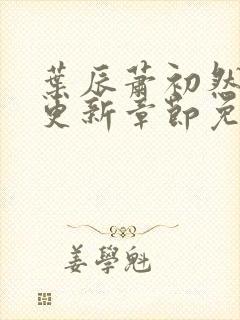 葉辰蕭初然
更新章節免
姜學魁